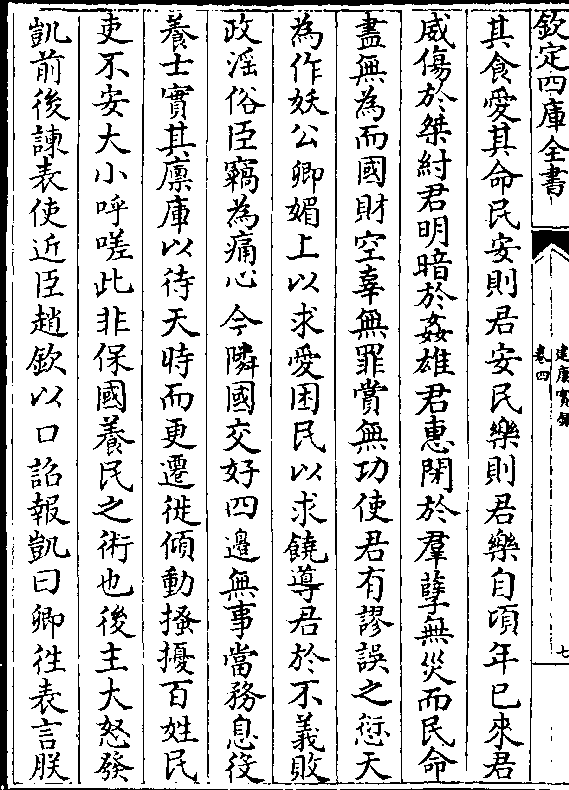 欽定四庫全書
建康實錄
卷四
七
其食愛其命民安則君安民樂則君樂自頃年已來君
威傷於桀紂君明暗於姦雄君惠閉於羣孽無災而民命
盡無為而國財空辜無罪賞無功使君有謬誤之愆天
為作妖公卿媚上以求愛困民以求饒導君於不義敗
政淫俗臣竊為痛心今隣國交好四邉無事當務息役
養士實其廪庫以待天時而更遷徙傾動搔擾百姓民
吏不安大小呼嗟此非保國養民之術也後主大怒發
凱前後諫表使近臣趙欽以口詔報凱曰卿徃表言朕